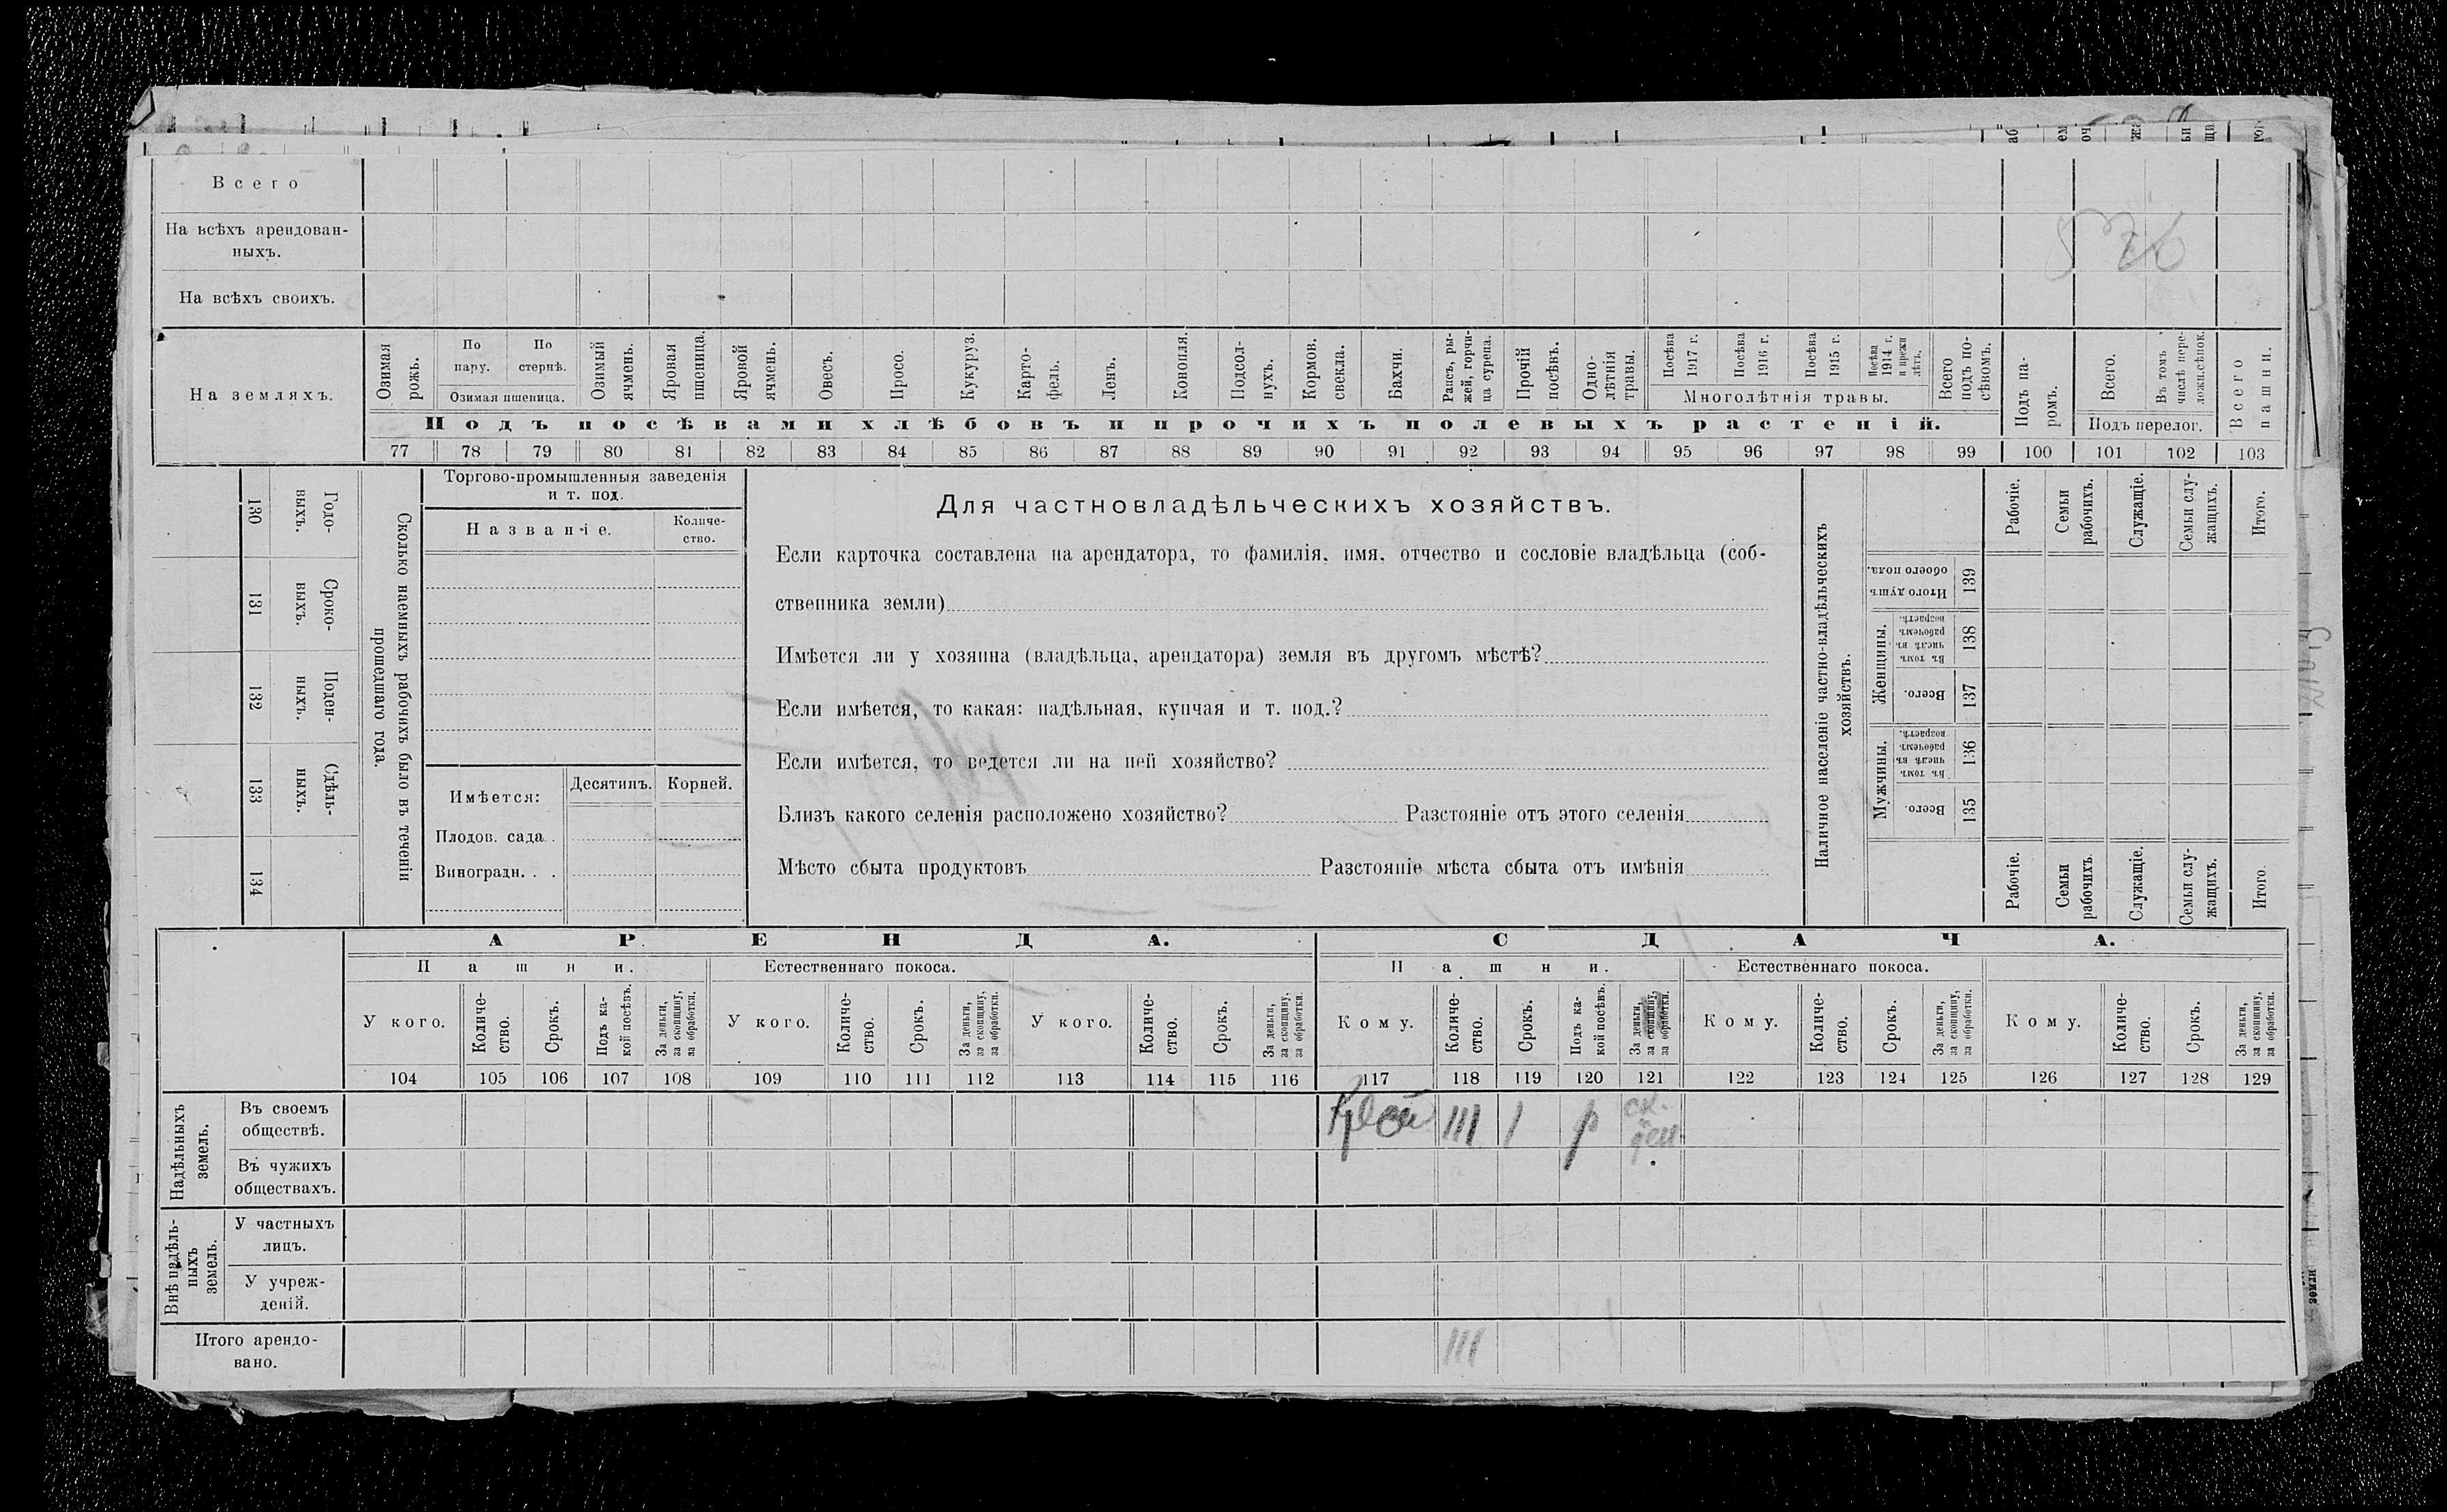 Всего
На всѣхъ арендован-
ныхъ.
На всѣхъ своихъ.
На земляхъ.
Озимая рожь.
По пару.
По стернѣ.
Озимая пшеница.
Озимый ячмень.
Яровая пшеница.
Яровой ячмень.
Овесъ.
Просо.
Кукуруз.
Карто-
фель.
Ленъ.
Конопля.
Подсол-
нухъ.
Кормов.
свекла.
Бахчи.
Рапсъ, ры-
жей, горчи-
ца сурепа.
Прочій
посѣвъ.
Одно-
лѣтнія
травы.
Посѣва
1917 г.
Посѣва
1916 г.
Посѣва
1915 г.
Посѣва
1914 г.
и прежн
лѣтъ.
Многолѣтнія травы.
Всего
подъ по-
сѣвомъ.
Подъ па-
ромъ.
Всего.
Въ томъ
числѣ пере-
ложн.сѣнок.
Подъ перелог.
Всего
пашни.
Подъ посѣвами хлѣбовъ и прочихъ полевыхъ растеній.
77 78 79 80 81 82 83 84 85 86 87 88 89 90 91 92 93 94 95 96 97 98 99 100 101 102 103
Сколько наемныхъ рабочихъ было въ теченіи
прошедшаго года.
Годо-
выхъ.
130
Сроко-
выхъ.
131
Поден-
ныхъ.
132
Сдѣль-
ныхъ.
133
134
Торгово-промышленныя заведенія
и т. под.
Названіе.
Количе-
ство.
Имѣется:
Десятинъ.
Корней.
Плодов. сада.
Виноградн. . .
Для частновладѣльческихъ хозяйствъ.
Если карточка составлена на арендатора, то фамилія, имя, отчество и сословіе владѣльца (соб-
ственника земли)
Имѣется ли у хозяина (владѣльца, арендатора) земля въ другомъ мѣстѣ?
Если имѣется, то какая: надѣльная, купчая и т. под.?
Если имѣется, то ведется ли на ней хозяйство?
Близъ какого селенія расположено хозяйство? Разстояніе отъ этого селенія
Мѣсто сбыта продуктовъ Разстояніе мѣста сбыта отъ имѣнія
Наличное населеніе частно-владѣльческихъ
хозяйствъ.
Рабочіе.
Семьи
рабочихъ.
Служащіе.
Семьи слу-
жащихъ.
Итого.
Итого душъ
обоего пола.
139
Женщины.
Въ томъ
числѣ въ
рабочемъ
возрастѣ.
138
Всего.
137
Мужчины.
Въ томъ
числѣ въ
рабочемъ
возрастѣ.
136
Всего.
135
Рабочіе.
Семьи
рабочихъ.
Служащіе.
Семьи слу-
жащихъ.
Итого.
АРЕНДА.
СДАЧА.
Пашни.
Естественнаго покоса.
Пашни.
Естественнаго покоса.
У кого.
Количе-
ство.
Срокъ.
Подъ ка-
кой посѣвъ.
За деньги,
за скопщину,
за обработки.
У кого.
Количе-
ство.
Срокъ.
За деньги,
за скопщину,
за обработки.
У кого.
Количе-
ство.
Срокъ.
За деньги,
за скопщину,
за обработки.
Кому.
Количе-
ство.
Срокъ.
Подъ ка-
кой посѣвъ.
За деньги,
за скопщину,
за обработки.
Кому.
Количе-
ство.
Срокъ.
За деньги,
за скопщину,
за обработки.
Кому.
Количе-
ство.
Срокъ.
За деньги,
за скопщину,
за обработки.
104 105 106 107 108 109 110 111 112 113 114 115 116 117 118 119 120 121 122 123 124 125 126 127 128 129
Надѣльныхъ
земель.
Въ своемъ
обществѣ.
III I р
Въ чужихъ
обществахъ.
Внѣ надѣль-
ныхъ
земель.
У частныхъ
лицъ.
У учреж-
деній.
Итого арендо-
вано.
III